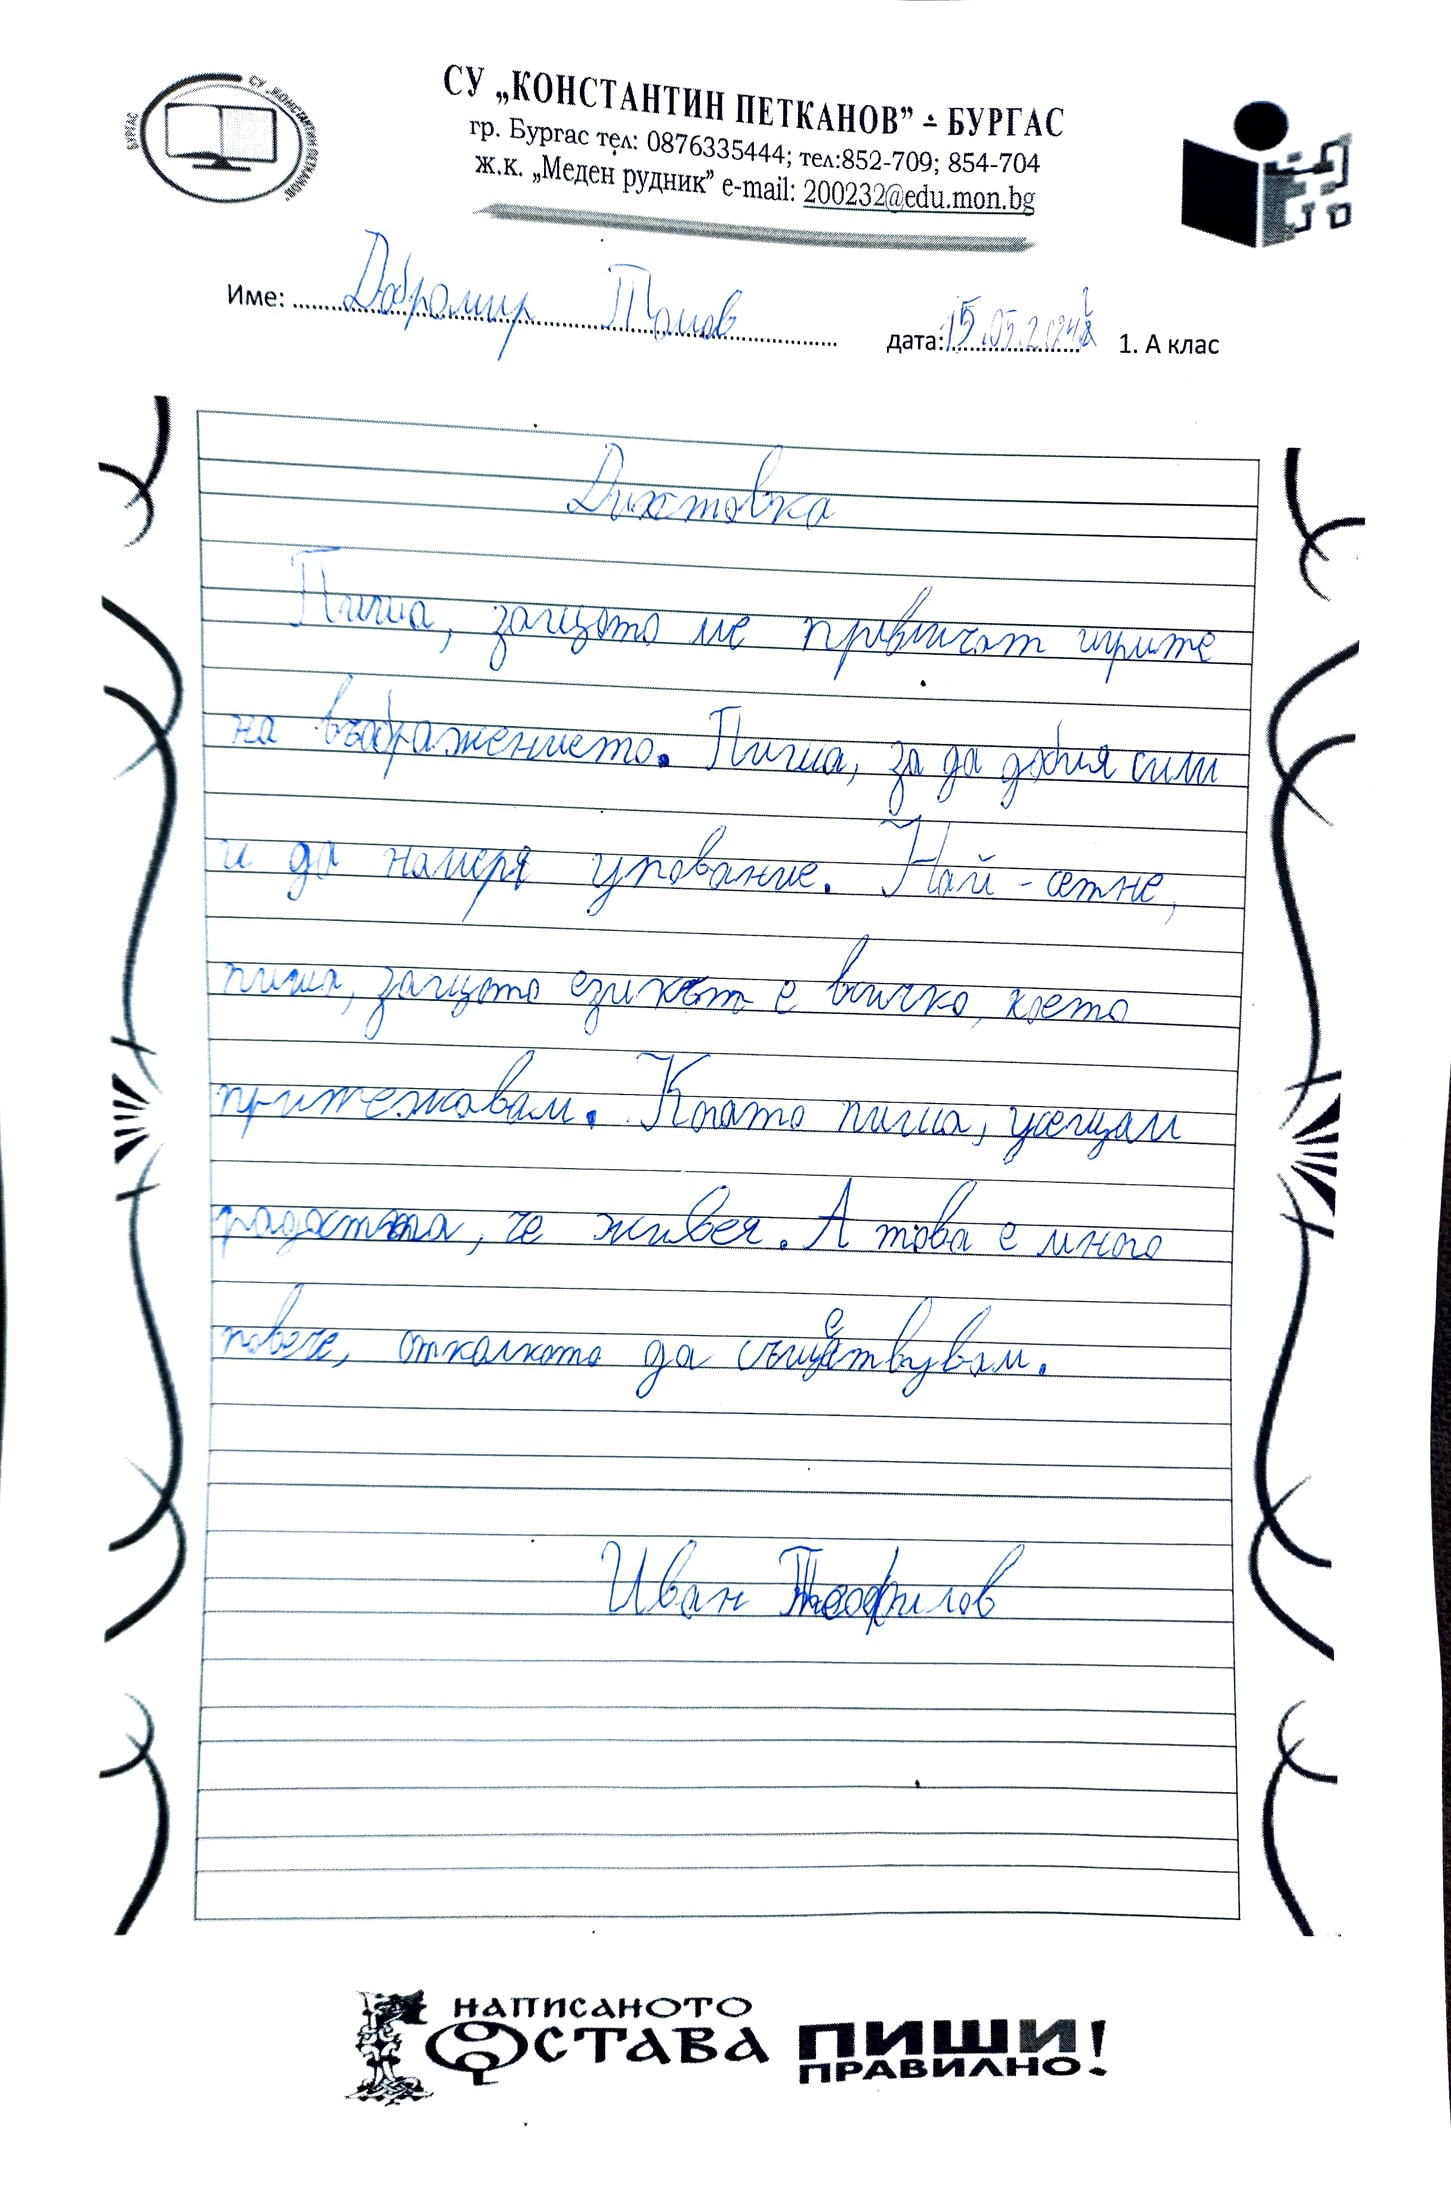 СУ „КОНСТАНТИН ПЕТКАНОВ” - БУРГАС
гр. Бургас тел: 0876335444; тел:852-709; 854-704
ж.к. „Меден рудник” e-mail: 200232@edu.mon.bg
СУ „КОНСТАНТИН ПЕТКАНОВ" БУРГАС
Име: Добромир дата: 15.05.2024 1. А клас
Диктовка
Пиша, защото ме привличат игрите
на въображението. Пиша, за да добия сили
и да намеря упование. Най-сетне,
пиша, защото езикът е всичко, което
притежавам. Когато пиша, усещам
радостта, че живея. А това е много
повече, отколкото да съществувам.
Иван Теофилов
НАПИСАНОТО
ОСТАВА ПИШИ
ПРАВИЛНО!